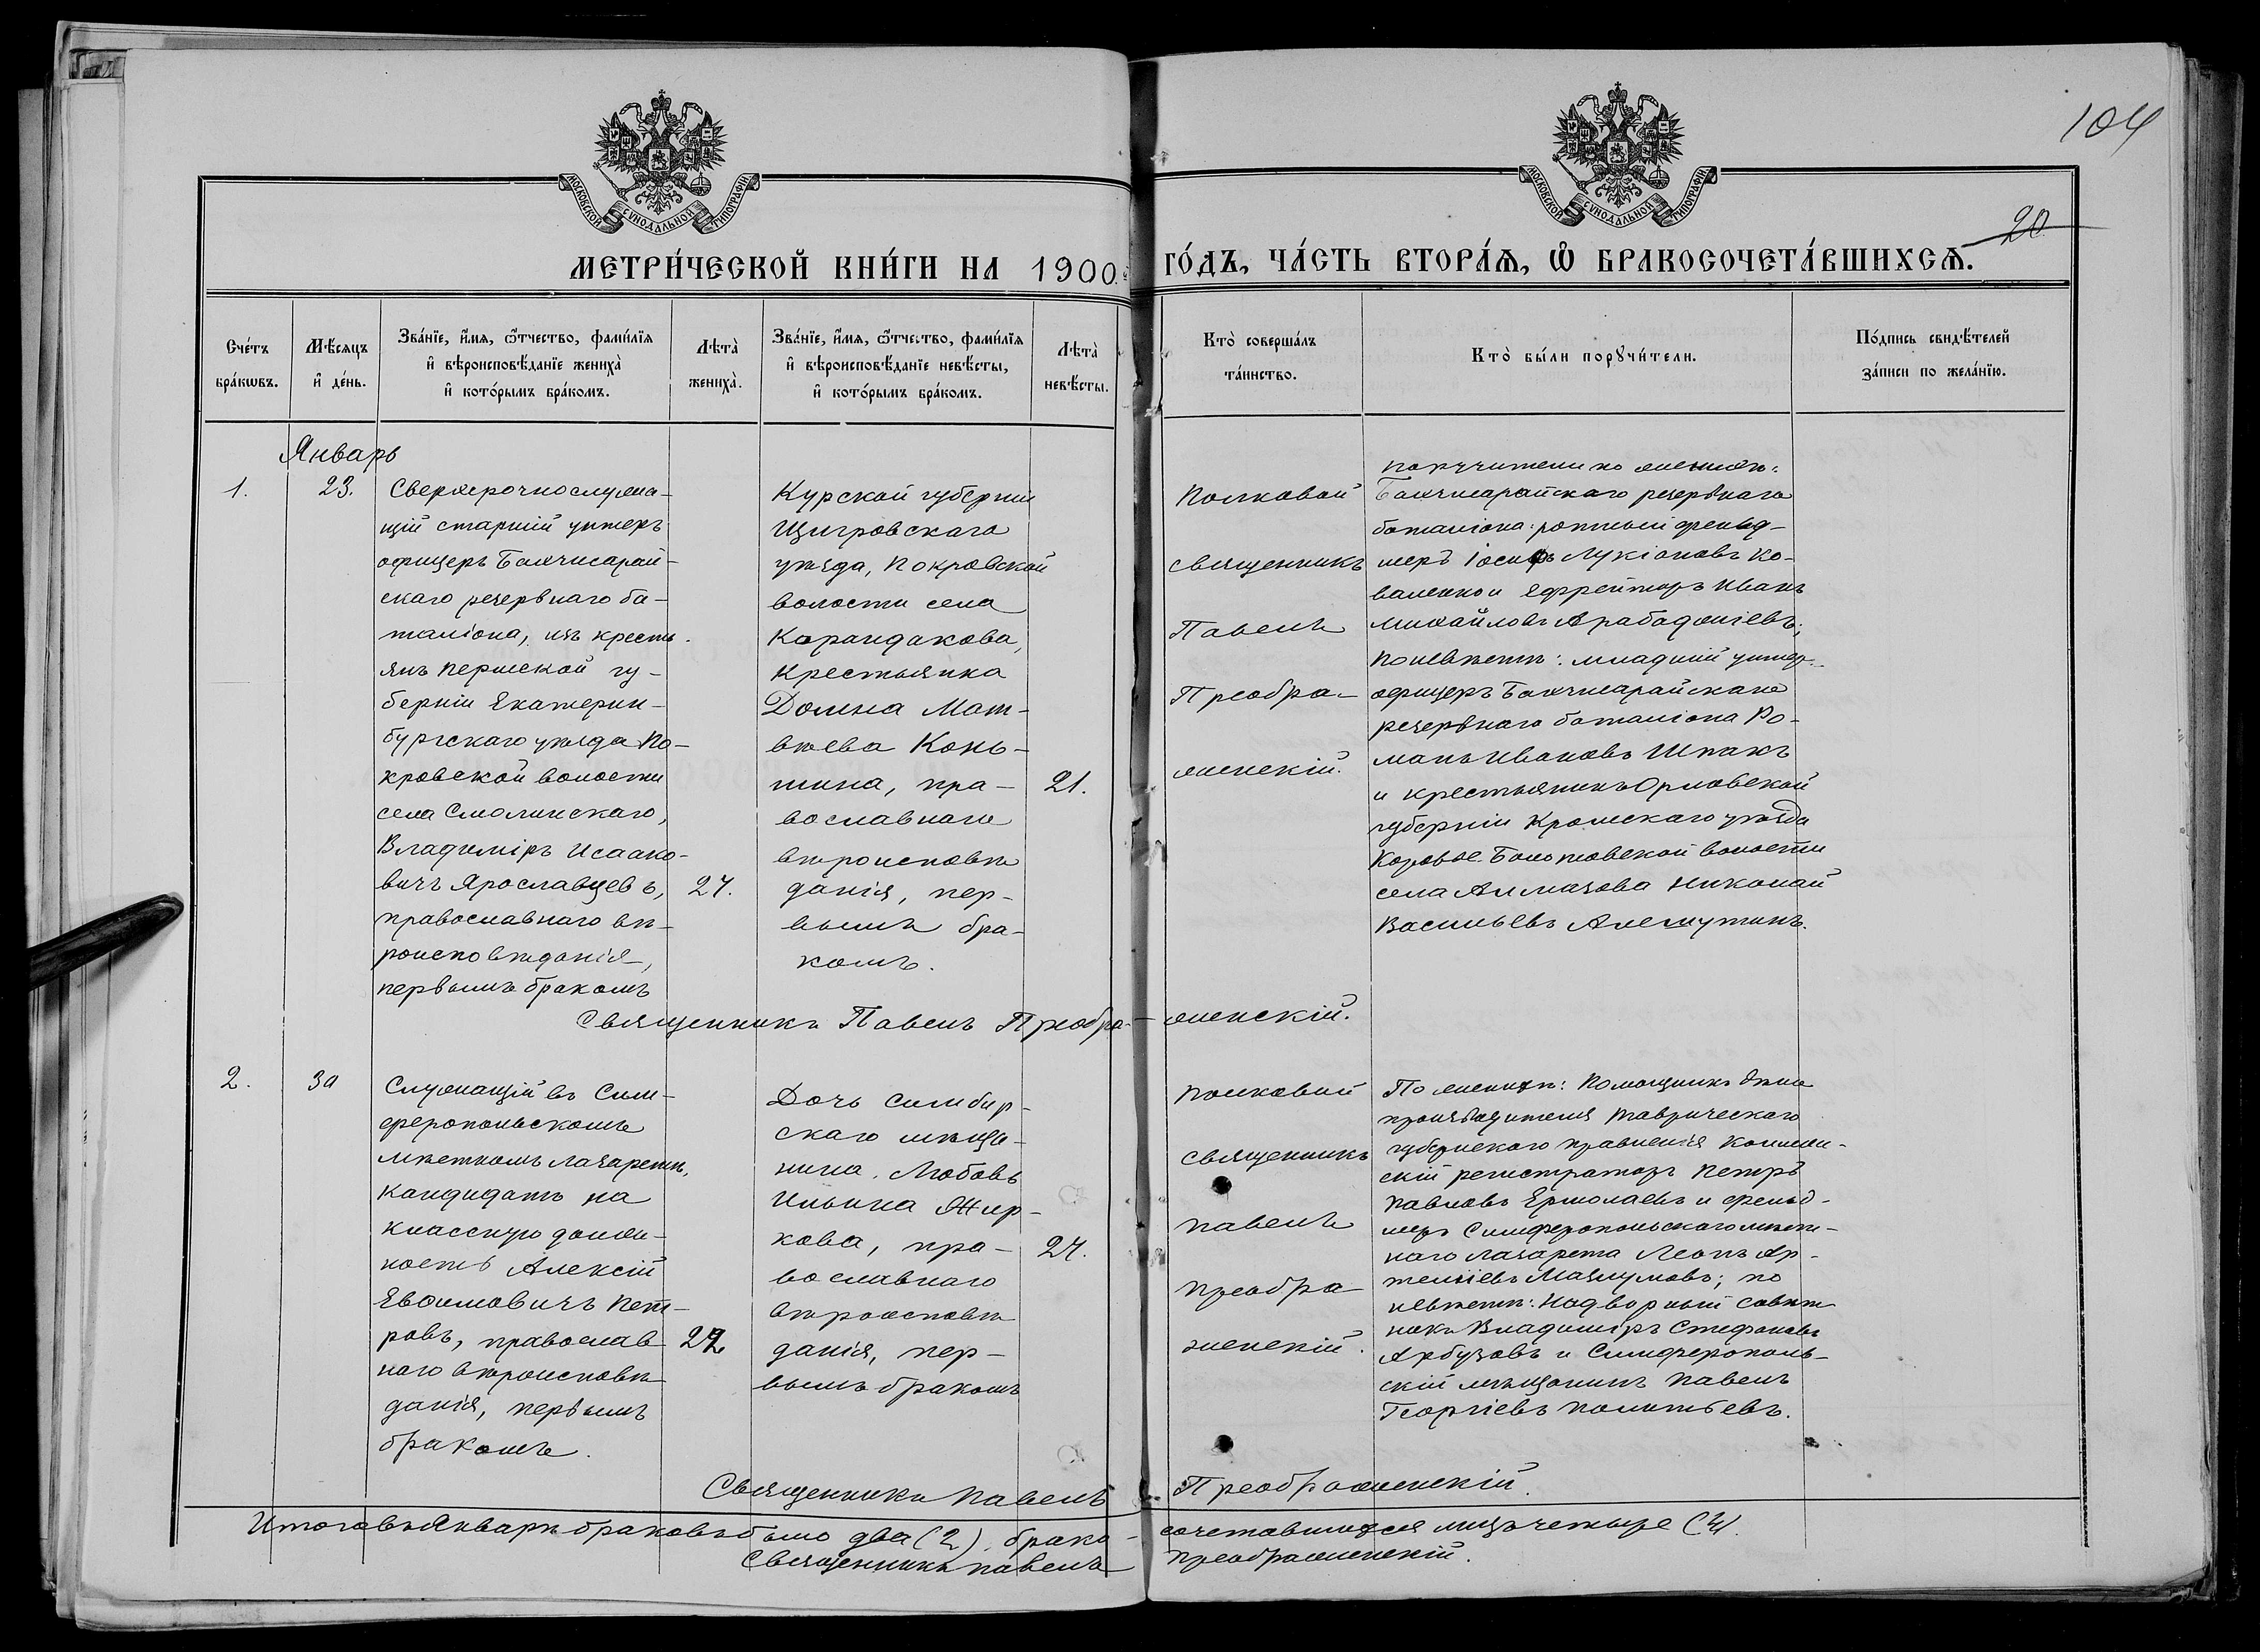 104
20
МОСКОВСКОЙ СУНОДАЛЬНОЙ ТИПОГРАФІИ
МОСКОВСКОЙ СУНОДАЛЬНОЙ ТИПОГРАФІИ
МЕТРИ́ЧЕСКОЙ КНИ́ГИ НА 1900 ГО́ДЪ, ЧА́СТЬ ВТОРА́Я, Ѡ БРАКОСОЧЕТА́ВШИХСѦ.
Сче́тъ
бра́кѡвъ.
Мѣ́сяцъ
и҆ де́нь.
Зва́нїе, и҆́мя, ѻ҆́тчество, фами́лїя
и҆ вѣроисповѣ́данїе жениха̀
и҆ кото́рымъ бра́комъ.
Лѣта̀
жениха̀.
Зва́нїе, и҆́мя, ѻ҆́тчество, фами́лїя
и҆ вѣроисповѣ́данїе невѣ́сты,
и҆ кото́рымъ бра́комъ.
Лѣта̀
невѣ́сты.
Кто̀ соверша́лъ
та́инство.
Кто̀ бы́ли порꙋчи́тели.
По́дпись свидѣ́телей
за́писи по жела́нїю.
Январь
1.
23.
Сверхсрочнослужа-
щій старшій унтеръ
офицеръ Бахчисарай-
скаго резервнаго ба-
таліона, изъ кресть-
янъ Пермской гу-
берніи Екатерин-
бургскаго уѣзда По-
кровской волости
села Смолинскаго,
Владиміръ Исаако-
вичъ Ярославцевъ,
православнаго вѣ-
роисповѣданія,
первымъ бракомъ
27.
Курской губерніи
Щигровскаго
уѣзда, Покровской
волости села
Карандакова,
крестьянка
Домна Мат-
вѣева Конь-
шина, пра-
вославнаго
вѣроисповѣ
данія, пер-
вымъ бра-
комъ.
21.
Полковой
священникъ
Павелъ
Преобра-
женскій.
поручители по женихѣ:
Бахчисарайскаго резервнаго
баталіона: ротный фельд-
шеръ Іосифъ Лукіановъ Ко-
валенко и Ефрейторъ Иванъ
Михайловъ Арабаджіевъ;
По невѣстѣ: младшій унтер-
офицеръ Бахчисарайскаго
резервнаго баталіона Ро-
манъ Ивановъ Шпакъ
и крестьянинъ Орловской
губерніи Кромскаго уѣзда
Коровье-Болотовской волости
села Алмазова Николай
Васильевъ Алешутинъ.
Священникъ Павелъ Преобра-женскій.
2.
30
Служащій въ Сим-
феропольскомъ
мѣстномъ лазаретѣ,
кандидатъ на
классную долж-
ность Алексій
Евѳимовичъ Пет-
ровъ, православ
наго вѣроисповѣ
данія, первымъ
бракомъ.
Дочь симбир-
скаго мѣща-
нина, Любовь
Ильина Жир-
кова, пра-
вославнаго
вѣроисповѣ
данія, пер-
вымъ бракомъ
24.
Полковой
священникъ
Павелъ
Преобра
женскій.
По женихѣ: Помощникъ дѣло
производителя Таврическаго
губернскаго правленія Коллеж-
скій регистраторъ Петръ
Павловъ Ермолаевъ и фельд-
шеръ Симферопольскаго мѣст-
наго лазарета Леонъ Ар-
теміевъ Мазлумовъ; по
невѣстѣ: Надворный совѣт
никъ Владиміръ Стефановъ
Арбузовъ и Симферополь-
скій мѣщанинъ Павелъ
Георгіевъ
Священникъ Павелъ Преображенскій.
Итого въ Январѣ браковъ было два (2), брако-сочетавшихся лицъ четыре (4).
Священникъ Павелъ Преображенскій.